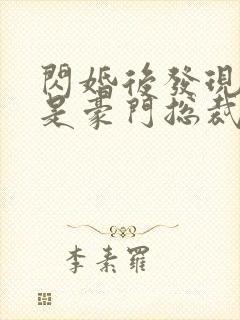 閃婚後發現
是豪門總裁
李素羅